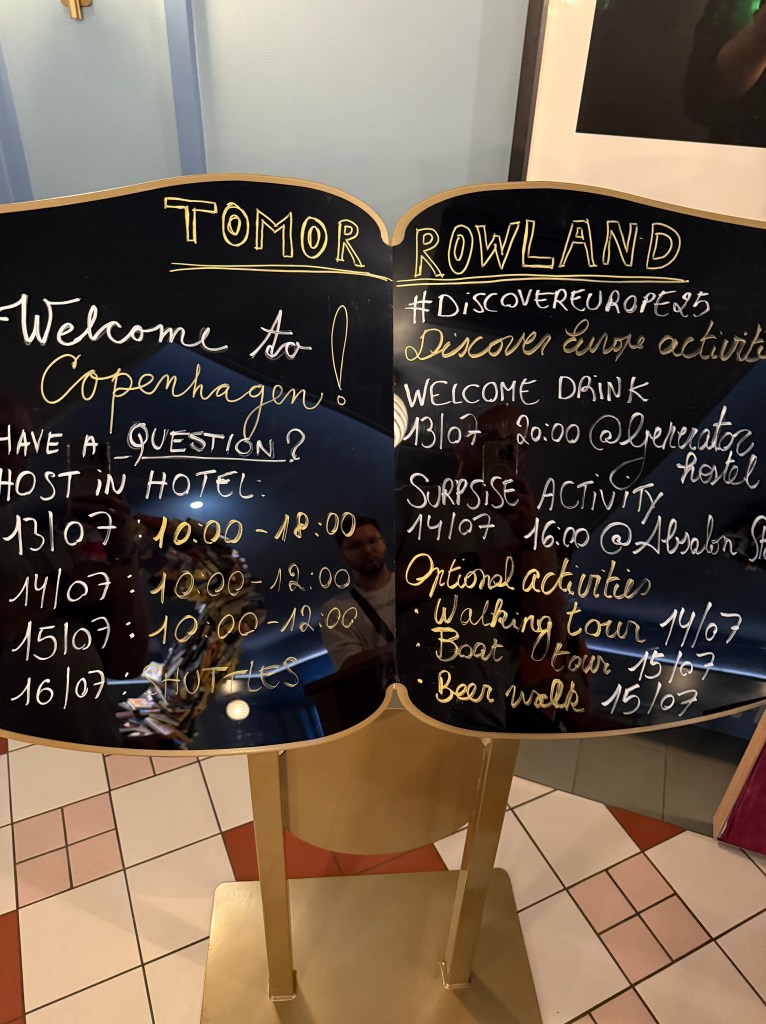 TOMOR
Welcome to
Copenhagen!
HAVE A QUESTION?
HOST IN HOTEL:
13/07 : 10:00 - 18:00
14/07 : 10:00 - 12:00
15/07 : 10:00 - 12:00
16/07 : SHUTTLES
ROWLAND
#DISCOVEREUROPE25
Discover Europe activiti
WELCOME DRINK
13/07 20:00 @Generator
hostel
SURPSISE ACTIVITY
14/07 16:00 @Absalon
Optional activities
· Walking tour 14/07
· Boat tour 15/07
· Beer walk 15/07